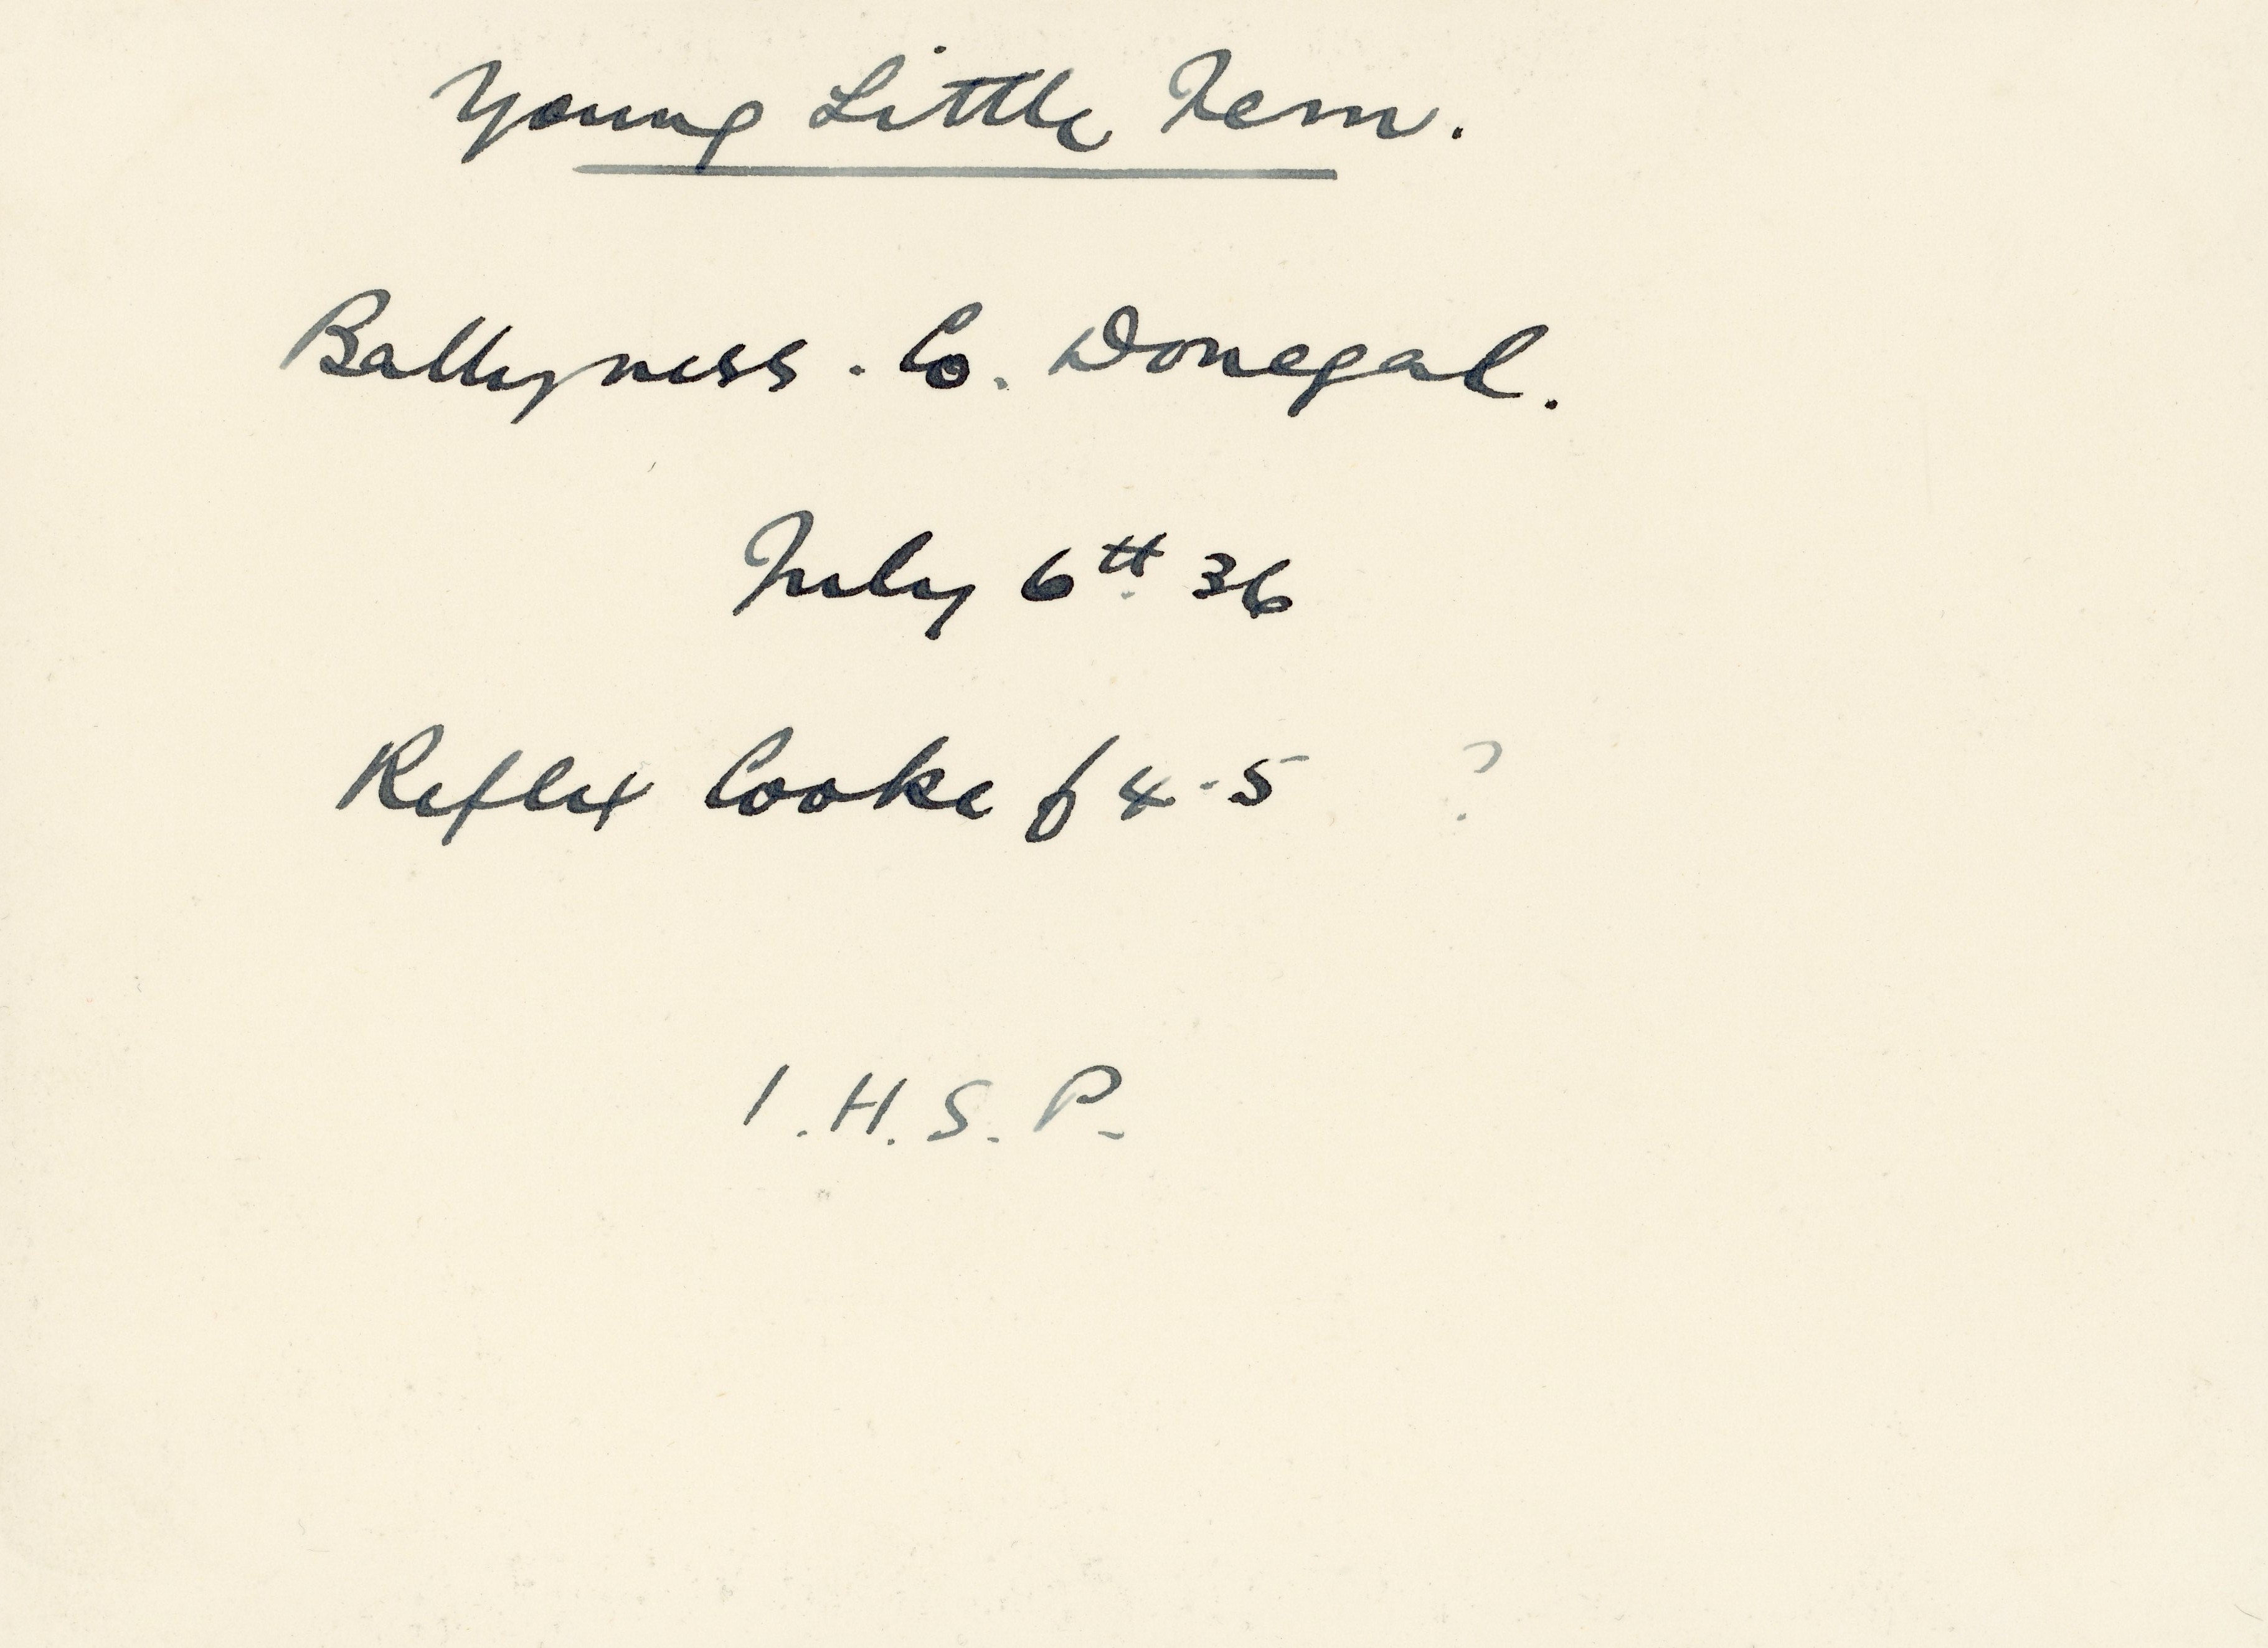 Young Little Tern.
Ballyness. Co. Donegal.
July 6th 36
Reflex Cooke f4.5 ?
I.H.S.P.